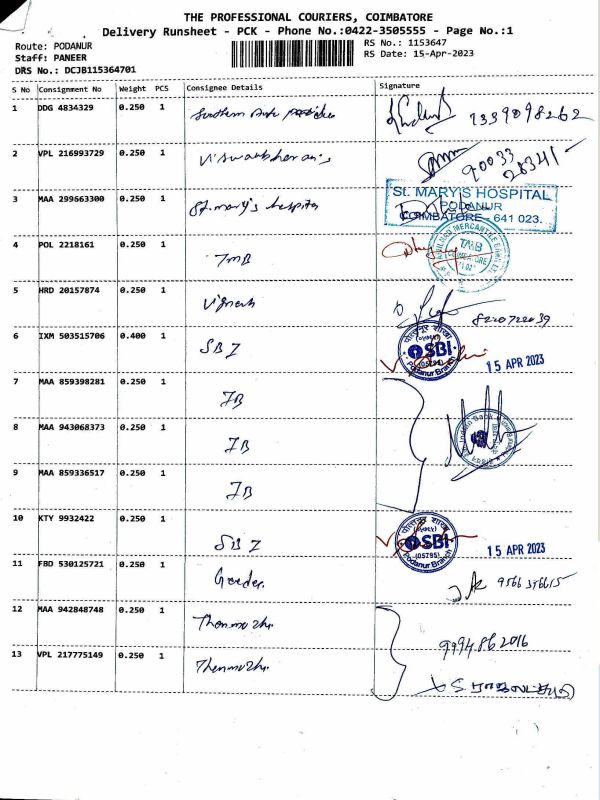 THE PROFESSIONAL COURIERS, COIMBATORE
Delivery Runsheet - PCK - Phone No.:0422-3505555 - Page No.:1
Route: PODANUR
RS No.: 1153647
Staff: PANEER
RS Date: 15-Apr-2023
DRS No.: DCJB115364701
S No Consignment No Weight PCS Consignee Details Signature
1 DDG 4834329 0.250 1
2 VPL 216993729 0.250 1
3 MAA 299663300 0.250 1 St.mary's hospital
St. MARY'S HOSPITAL
PODANUR
COIMBATORE - 641 023.
4 POL 2218161 0.250 1 TMB
TMB
COIMBATORE
5 HRD 20157874 0.250 1 Vignesh
6 IXM 503515706 0.400 1 SBI
SBI
(05795)
Podanur Branch
15 APR 2023
7 MAA 859398281 0.250 1 IB
8 MAA 943068373 0.250 1 IB
Indian Bank
9 MAA 859336517 0.250 1 IB
10 KTY 9932422 0.250 1 SBI
SBI
(05795)
Podanur Branch
15 APR 2023
11 FBD 530125721 0.250 1
12 MAA 942848748 0.250 1 Thenmozhi
9994862016
13 VPL 217775149 0.250 1 Thenmozhi